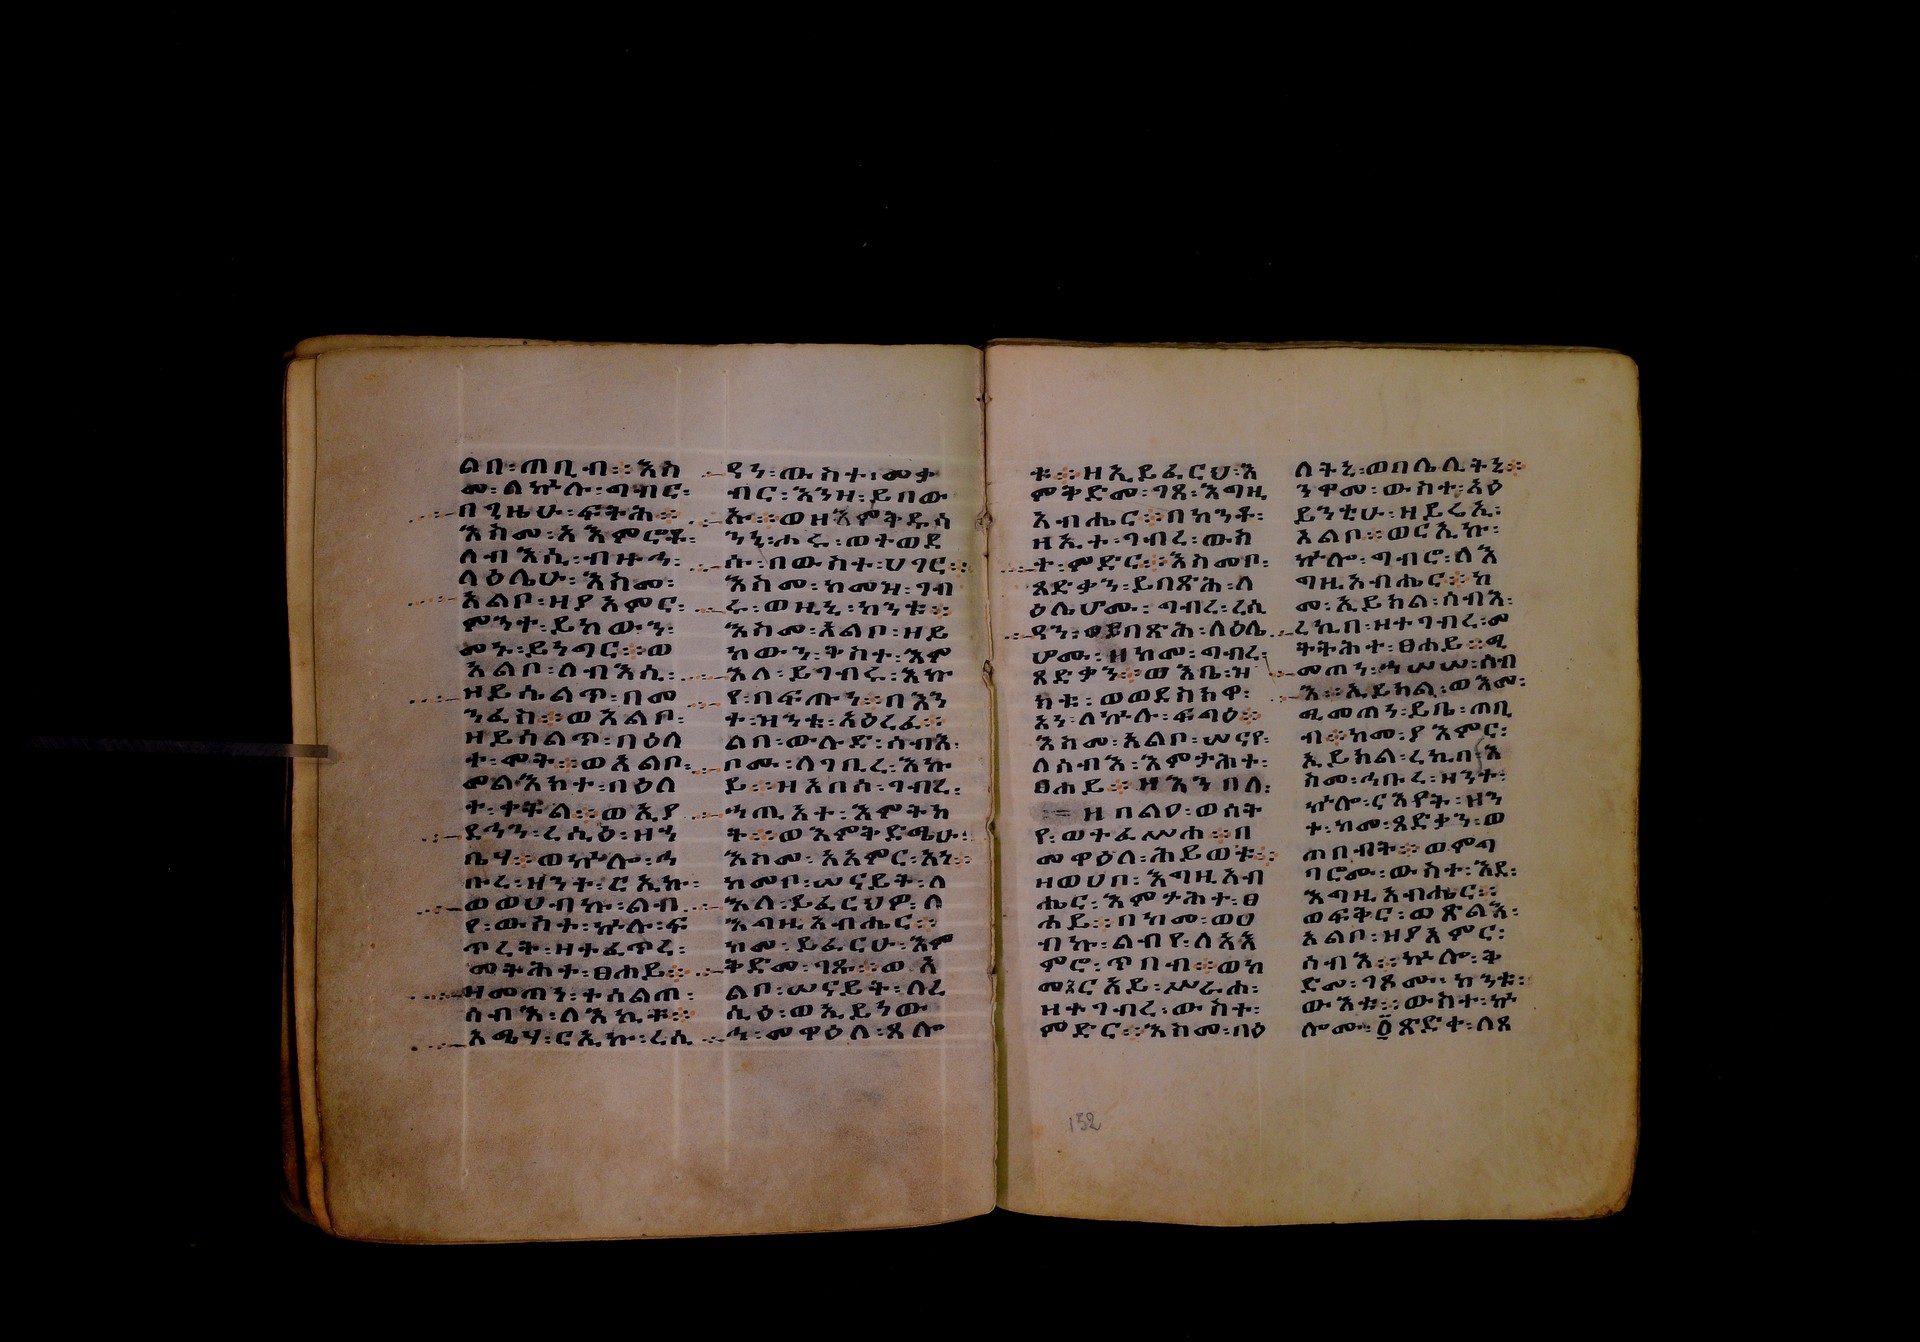 ልበ፡ጠቢብ፡፡እስ
መ፡ለኵሉ፡ግብር፡
በጊዜሁ፡ፍትሕ፡፡
እስመ፡አእምሮቱ፡
ለብእሲ፡ብዙኅ፡
ላዕሌሁ፡እስመ፡
አልቦ፡ዘያአምር፡
ምንተ፡ይከውን፡
መኑ፡ይነግር፡፡ወ
አልቦ፡ለብእሲ፡
ዘይሴልጥ፡በመ
ንፈስ፡፡ወአልቦ፡
ዘይሰልጥ፡በዕለ
ተ፡ሞት፡፡ወአልቦ፡
መልእክተ፡በዕለ
ተ፡ቀትል፡፡ወኢያ
ድኅን፡ረሲዕ፡ዘኀ
ቤሃ፡፡ወኵሎ፡ኀ
ቡረ፡ዘንተ፡ርኢኩ፡
ወወሀብኩ፡ልብ
የ፡ውስተ፡ኵሉ፡ፍ
ጥረት፡ዘተፈጥረ፡
መትሕተ፡ፀሐይ፡፡
ዘመጠነ፡ተሰልጠ፡
ሰብእ፡ለእኪት፡፡
አሜሃ፡ርኢኩ፡ረሲ
ዓን፡ውስተ፡መቃ
ብር፡እንዘ፡ይበው
ኡ፡፡ወዘእምቅዱሳ
ንኒ፡ሐሩ፡ወተወደ
ሱ፡በውስተ፡ሀገር፡፡
እስመ፡ከመዝ፡ገብ
ሩ፡ወዚኒ፡ከንቱ፡፡
እስመ፡አልቦ፡ዘይ
ከውን፡ቅስተ፡እም
እለ፡ይገብሩ፡እኩ
የ፡በፍጡን፡፡በእን
ተ፡ዝንቱ፡አዕረፈ፡፡
ልበ፡ውሉደ፡ሰብእ፡
ቦሙ፡ለገቢረ፡እኩ
ይ፡፡ዘአበሰ፡ገብረ፡
ኀጢአተ፡እምትካ
ት፡፡ወእምቅድሜሁ፡፡
እስመ፡አአምር፡አነ፡፡
ከመቦ፡ሠናይት፡ለ
እለ፡ይፈርህዎ፡ለ
እግዚአብሔር፡፡
ከመ፡ይፈርሁ፡እም
ቅድመ፡ገጹ፡፡ወአ
ልቦ፡ሠናይት፡ለረ
ሲዕ፡ወኢይነው
ኅ፡መዋዕለ፡ጸሎ
ቱ፡፡ዘኢይፈርህ፡እ
ምቅድመ፡ገጸ፡እግዚ
አብሔር፡፡በከንቶ፡
ዘኢተ፡ገብረ፡ውስ
ተ፡ምድር፡፡እስመቦ፡
ጻድቃን፡ይበጽሕ፡ለ
ዕሌሆሙ፡ግብረ፡ረሲ
ዓን፡ወይበጽሕ፡ለዕሌ
ሆሙ፡ዘከመ፡ግብረ፡
ጻድቃን፡፡ወእቤ፡ዝ
ከቱ፡ወወደስክዋ፡
አነ፡ለኵሉ፡ፍግዕ፡፡
እስመ፡አልቦ፡ሠናየ፡
ለሰብእ፡እምታሕተ፡
ፀሐይ፡፡ዘእንበለ፡
ዘበልዐ፡ወሰት
የ፡ወተፈሥሐ፡፡በ
መዋዕለ፡ሕይወቱ፡፡
ዘወሀቦ፡እግዚአብ
ሔር፡እምታሕተ፡ፀ
ሐይ፡፡በከመ፡ወሀ
ብኩ፡ልብየ፡ለአእ
ምሮ፡ጥበብ፡፡ወከ
መ፤ርአይ፡ሥራሐ፡
ዘተገብረ፡ውስተ፡
ምድር፡፡እስመ፡በዕ
ለትኒ፡ወበሌሊትኒ፡፡
ንዋመ፡ውስተ፡አዕ
ይንቲሁ፡ዘይሬኢ፡
አልቦ፡፡ወርኢኩ፡
ኵሎ፡ግብሮ፡ለእ
ግዚአብሔር፡፡ከ
መ፡ኢይክል፡ሰብእ፡
ረኪበ፡ዘተገብረ፡መ
ትትሕተ፡ፀሐይ፡፡ሚ
መጠነ፡ኀሠሠ፡ሰብ
እ፡፡ኢይክል፡ወእመ፡
ሚመጠነ፡ይቤ፡ጠቢ
ብ፡፡ከመ፡ያእምር፡
ኢይክል፡ረኪበ፡እ
ስመ፡ኀቡረ፡ዘንተ፡
ኵሎ፡ርእየት፡ዘን
ተ፡ከመ፡ጻድቃን፡ወ
ጠበብት፡፡ወምግ
ባሮሙ፡ውስተ፡እደ፡
እግዚአብሔር፡፡
ወፍቅር፡ወጽልእ፡
አልቦ፡ዘያአምር፡
ሰብእ፡፡ኵሎ፡ቅ
ድመ፡ገጾሙ፡ከንቱ፡
ውእቱ፡፡ውስተ፡ኵ
ሎሙ፡፩ጽድቀ፡ለጻ
152